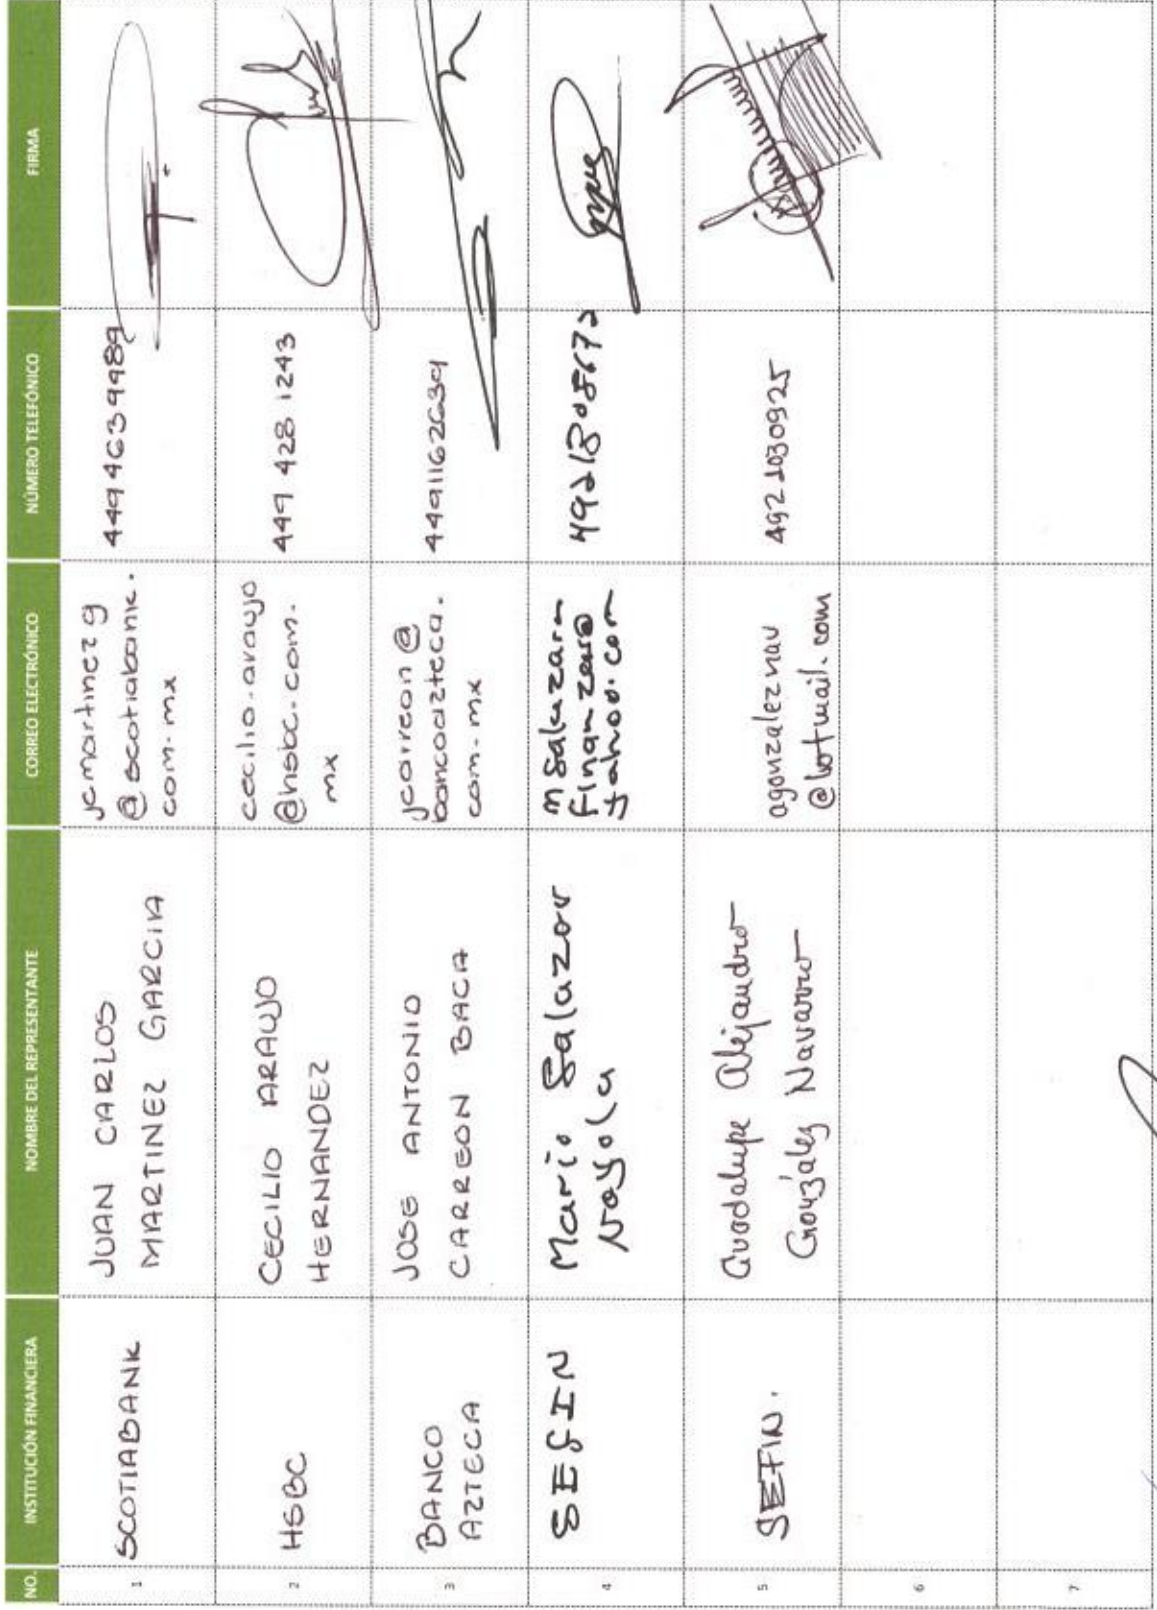 NO. INSTITUCIÓN FINANCIERA NOMBRE DEL REPRESENTANTE CORREO ELECTRÓNICO NÚMERO TELEFÓNICO FIRMA
1
SCOTIABANK
JUAN CARLOS
MARTINEZ GARCIA
jcmartinezg
@scotiabank.
com.mx
4494639989
2
HSBC
CECILIO ARAUJO
HERNANDEZ
cecilio.araujo
@hsbc.com.
mx
449 428 1243
3
BANCO
AZTECA
JOSE ANTONIO
CARREON BACA
jcarreon@
bancoazteca.
com.mx
4491162639
4
SEFIN
Mario Salazar
Noyola
msalazarn
yahoo.com
5
SEFIN.
Guadalupe Alejandro
González Navarro
agonzaleznav
@hotmail.com
492 1030925
6
7